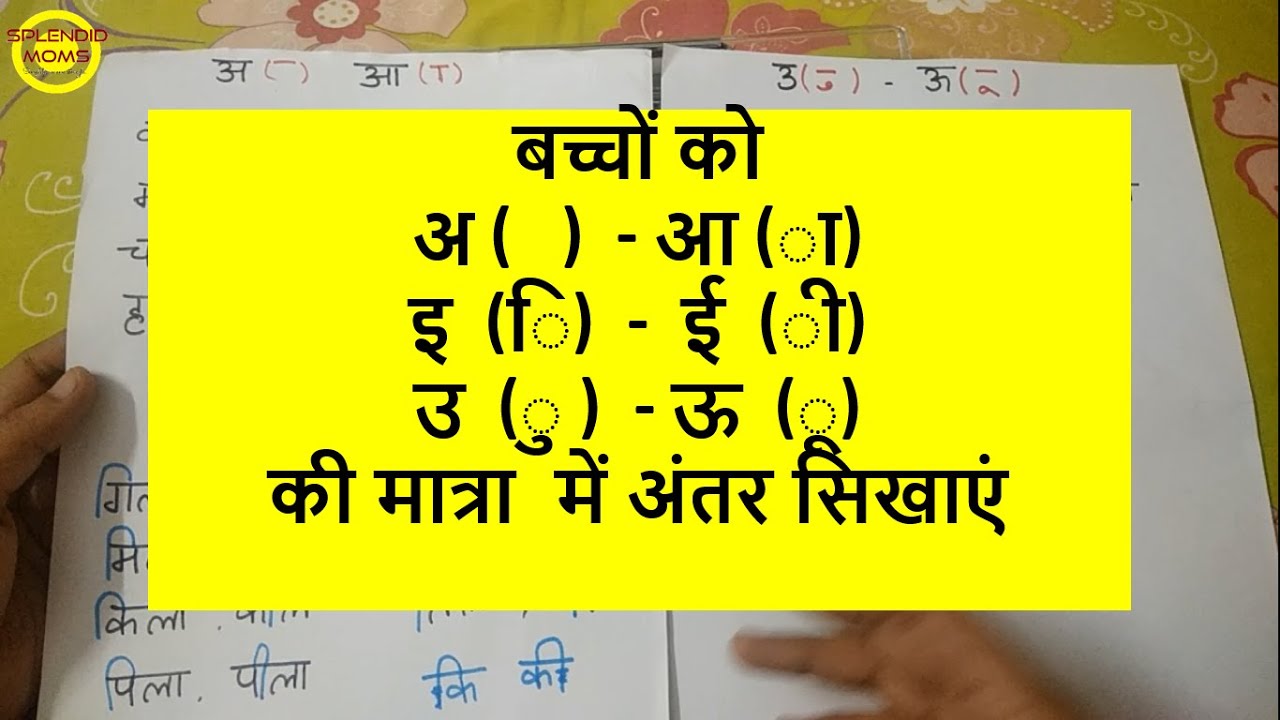 SPLENDID
MOMS
अ (-) आ (ा)
उ (ु) - ऊ (ू)
बच्चों को
अ ( ) - आ (ा)
इ (ि) - ई (ी)
उ (ु) - ऊ (ू)
की मात्रा में अंतर सिखाएं
किला
पिला. पीला
कि की